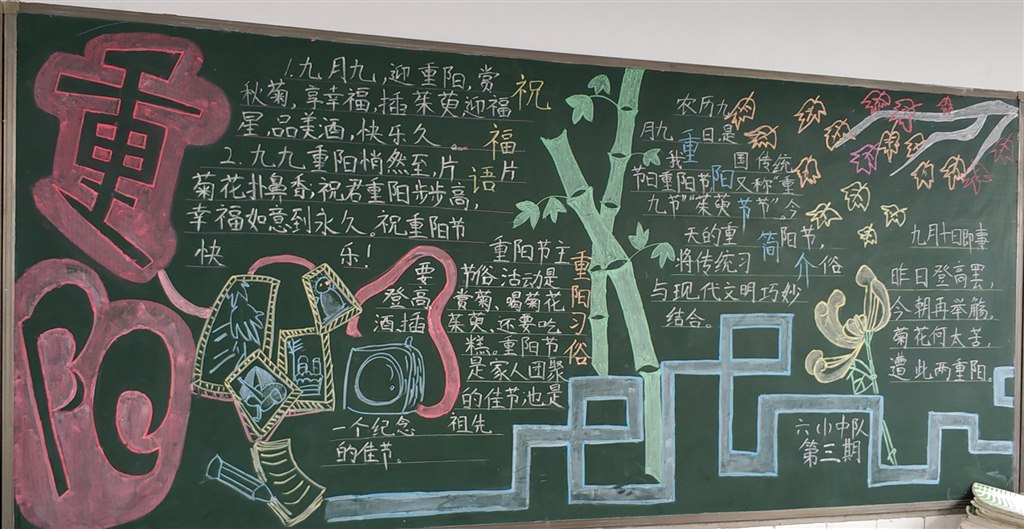 重阳
祝福语
1.九月九,迎重阳,赏
秋菊,享幸福,插茱萸迎福
星,品美酒,快乐久。
2.九九重阳悄然至,片片
菊花扑鼻香,祝君重阳步步高,
幸福如意到永久。祝重阳节
快乐!
重阳习俗
重阳节主要
节俗活动是登高
赏菊、喝菊花酒、插
茱萸、还要吃
糕。重阳节
是家人团聚
的佳节,也是
一个纪念祖先
的佳节。
重阳节简介
农历九
月九日是
我国传统
节日重阳节又称"重
九节""茱萸节"。今
天的重阳节,
将传统习俗
与现代文明巧妙
结合。
九月十日即事
昨日登高罢,
今朝再举觞。
菊花何太苦,
遭此两重阳。
六小中队
第三期